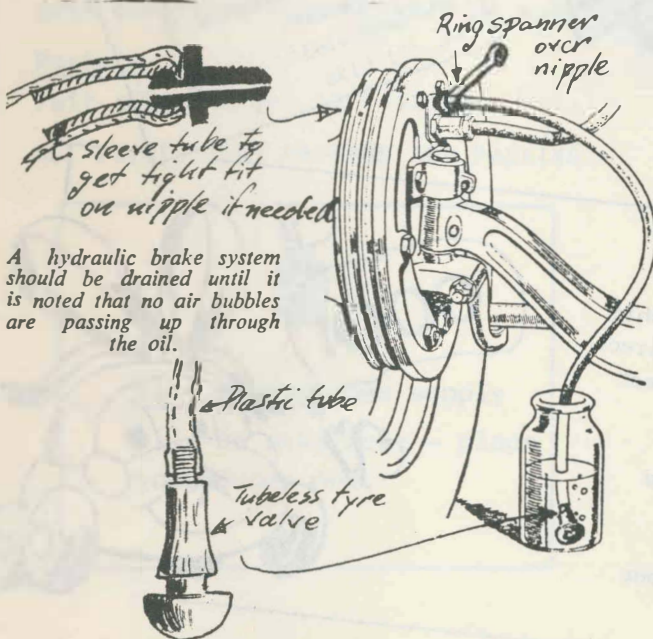 Ring spanner
over
nipple
Sleeve tube to
get tight fit
on nipple if needed
A hydraulic brake system
should be drained until it
is noted that no air bubbles
are passing up through
the oil.
Plastic tube
Tubeless tyre
valve